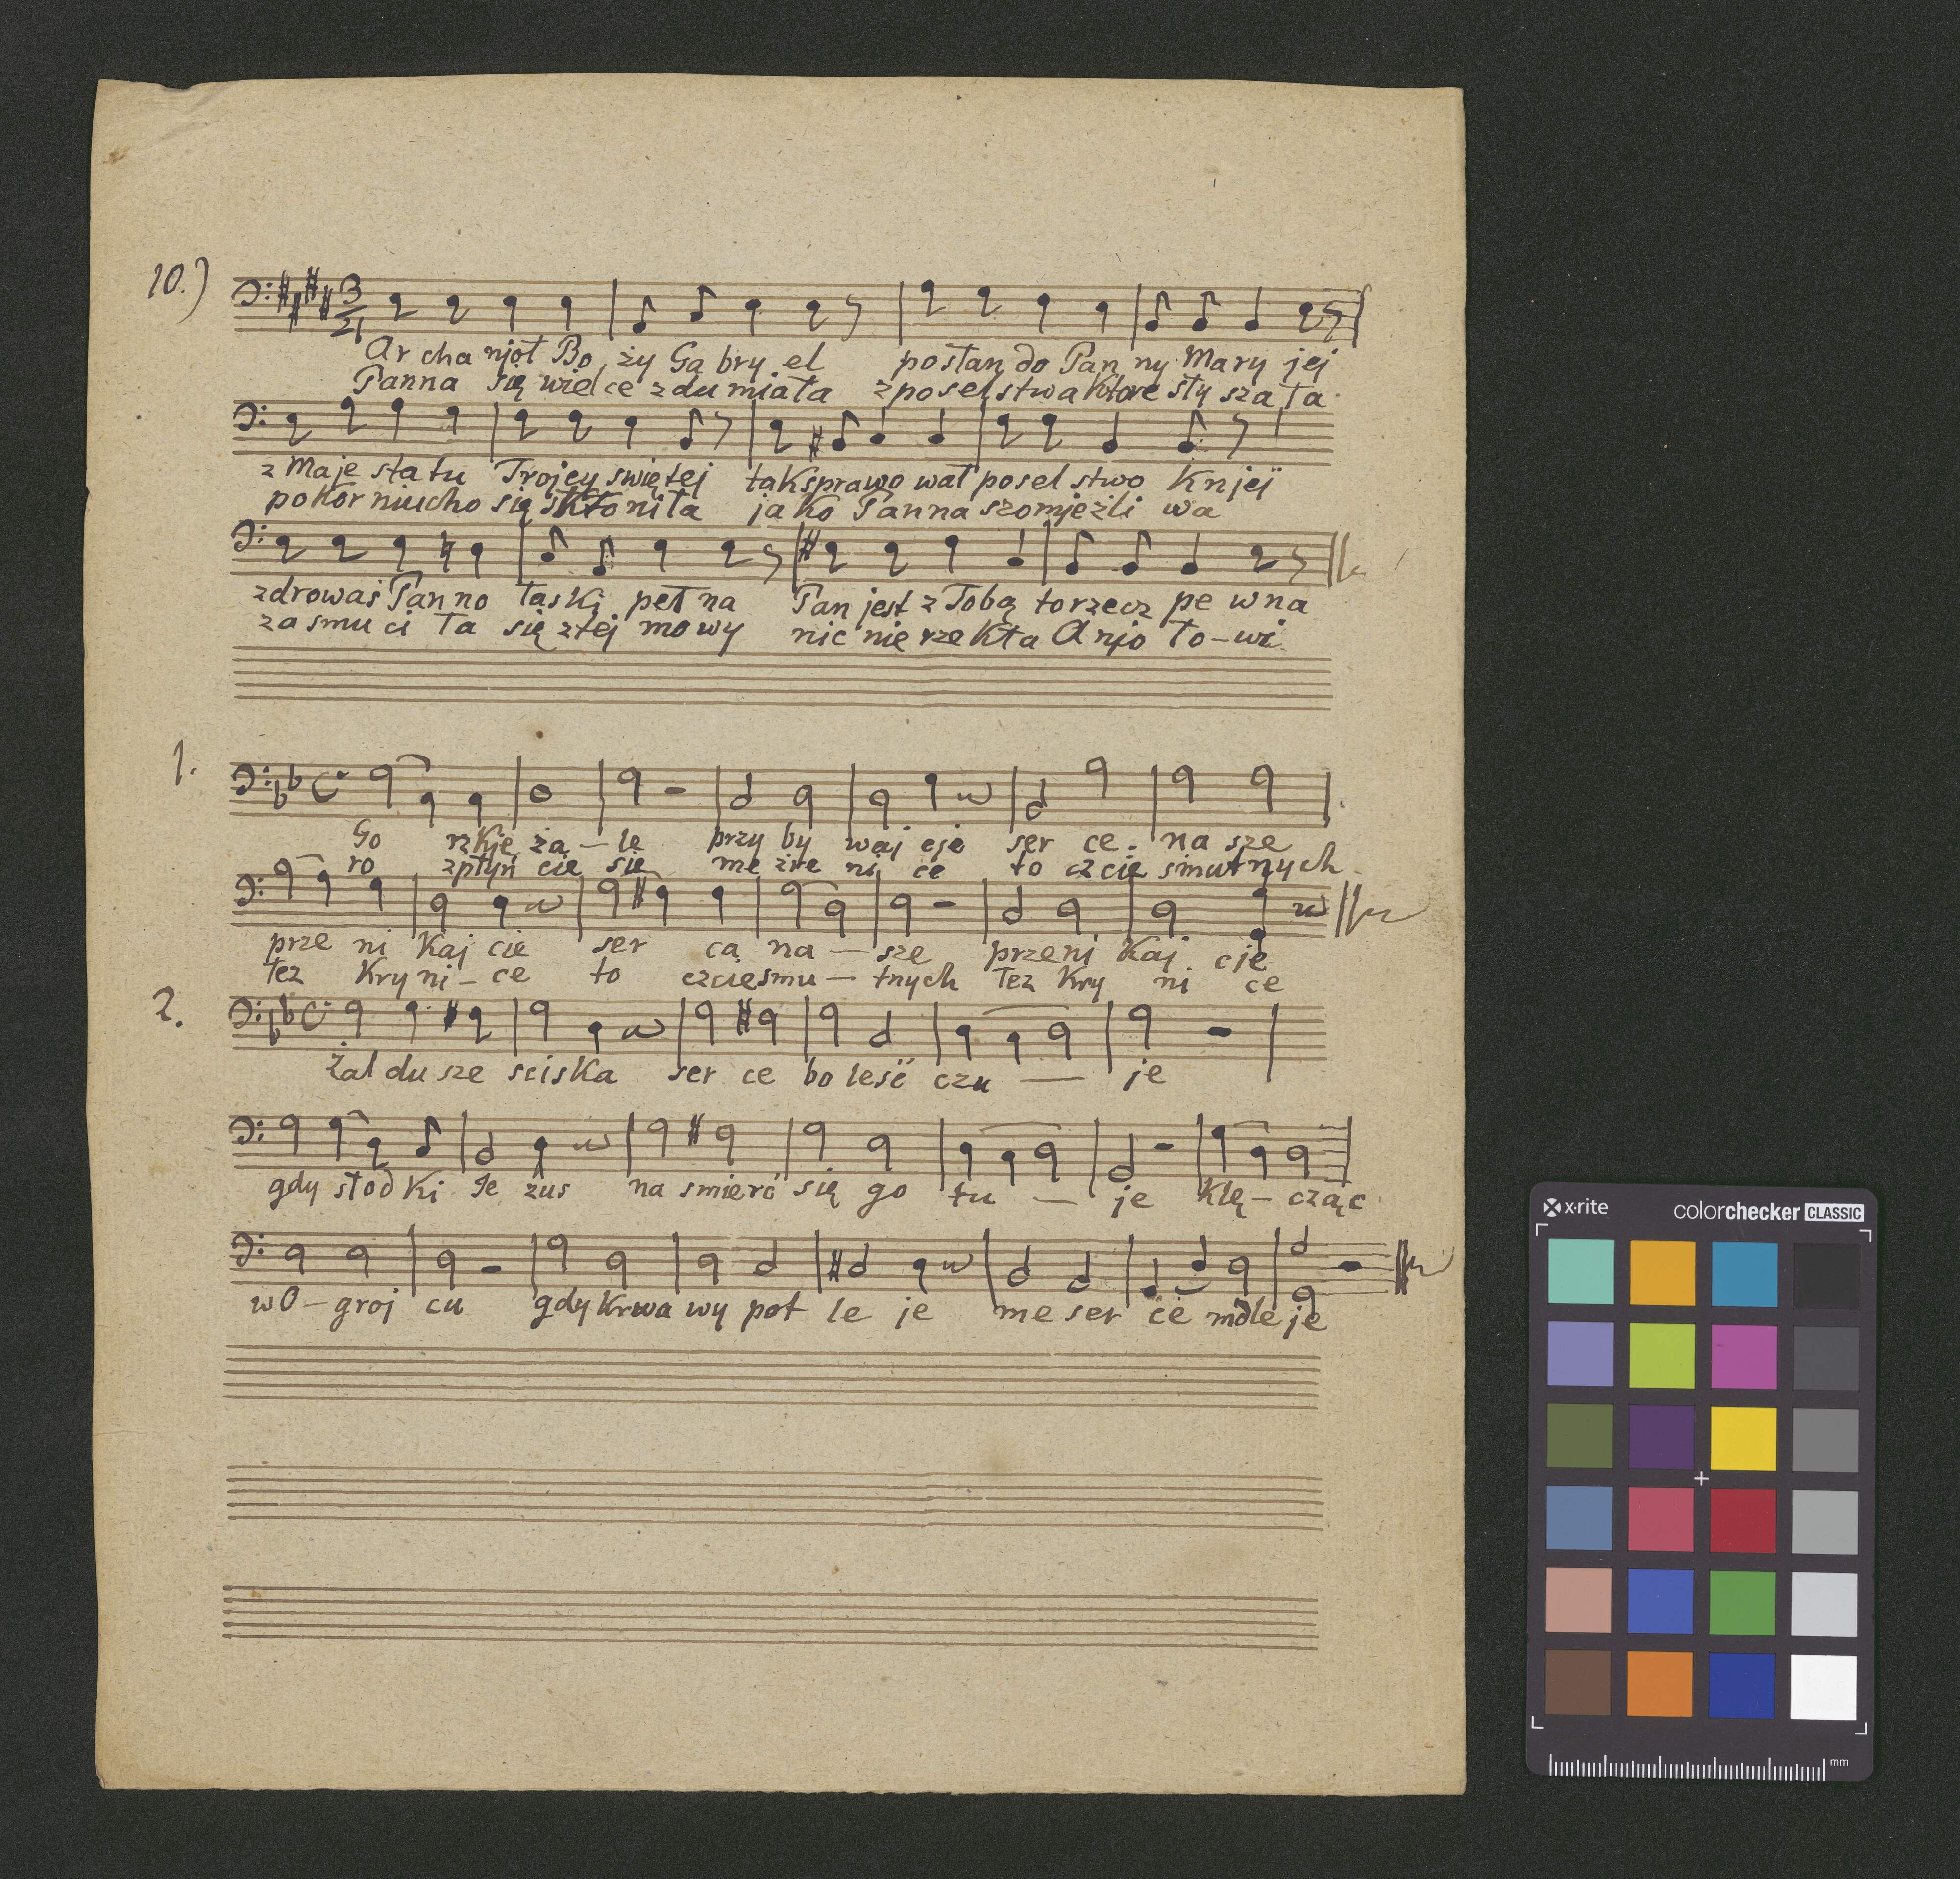 10.)
3/4
Ar cha njoł Bo ży Ga bry el posłan do Pan ny Mary jej
Panna się wielce zdu miała z posel stwa Ktore sły sza ła
z Maje sta tu Trojcy swiętej tak sprawo wał posel stwo K njej
pokor niucho się skłoniła jako Panna szomjeźli wa
zdrowaś Panno łaski pełna Pan jest z Tobą to rzecz pe wna
za smu ci ła się z tej mowy nic nie rze kła Anjo ło-wi
1.
Go rzkje ża-le przy by waj cje ser ce na sze
ro zpłyń cie się me źre ni ce to czcie smutnych
prze ni kaj cie ser ca na-sze przeni kaj cje
łez kry ni-ce to czcie smu-tnych łez kry ni ce
2.
Żal du sze sciska ser ce bo leść czu — je
gdy słod ki Je zus na smierć się go tu — je klę-cząc
w O-groj cu gdy krwa wy pot le je me ser ce mdle je
x·rite
colorchecker CLASSIC
mm